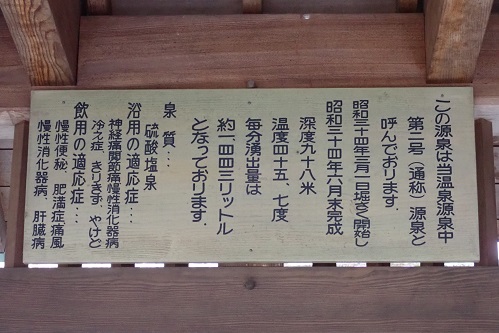 この源泉は当温泉源泉中
第二号（通称）源泉と
呼んでおります．
昭和三十四年三月一日堀さく開始し
昭和三十四年六月末完成
深度九十八米
温度四十五、七度
毎分湧出量は
約一四四三リットル
となっております．
泉 質…
硫酸塩泉
浴用の適応症…
神経痛関節痛慢性消化器病
冷え症 きりきず やけど
飲用の適応症…
慢性便秘、肥満症痛風
慢性消化器病 肝臓病